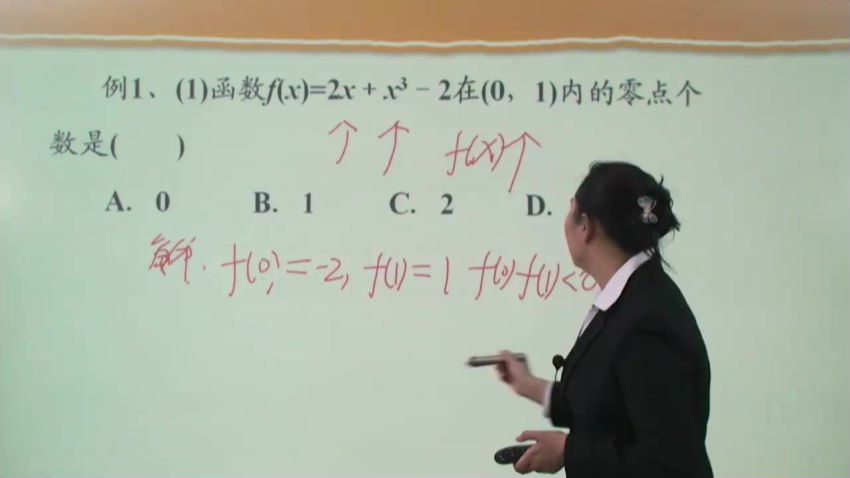 例1、(1)函数f(x)=2x+x³-2在(0, 1)内的零点个
数是( )
↑ ↑ f(x)↑
A. 0 B. 1 C. 2 D.
解. f(0)=-2, f(1)=1 f(0)f(1)<0